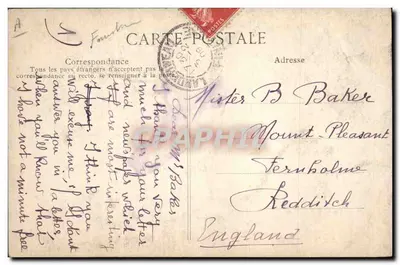 A
1)
CARTE POSTALE
Correspondance
Tous les pays étrangers n'acceptent pas
correspondance au recto, se renseigner à la
Adresse
Mister B Baker
Mount-Pleasant
Fernholme
Redditch
England
Baker
I thank you very
much your letter
and newspaper which
are most interesting
I think you
will excuse me if I dont
answer you in a letter,
when you'll know that
I have not a minute free
CPAPHIL